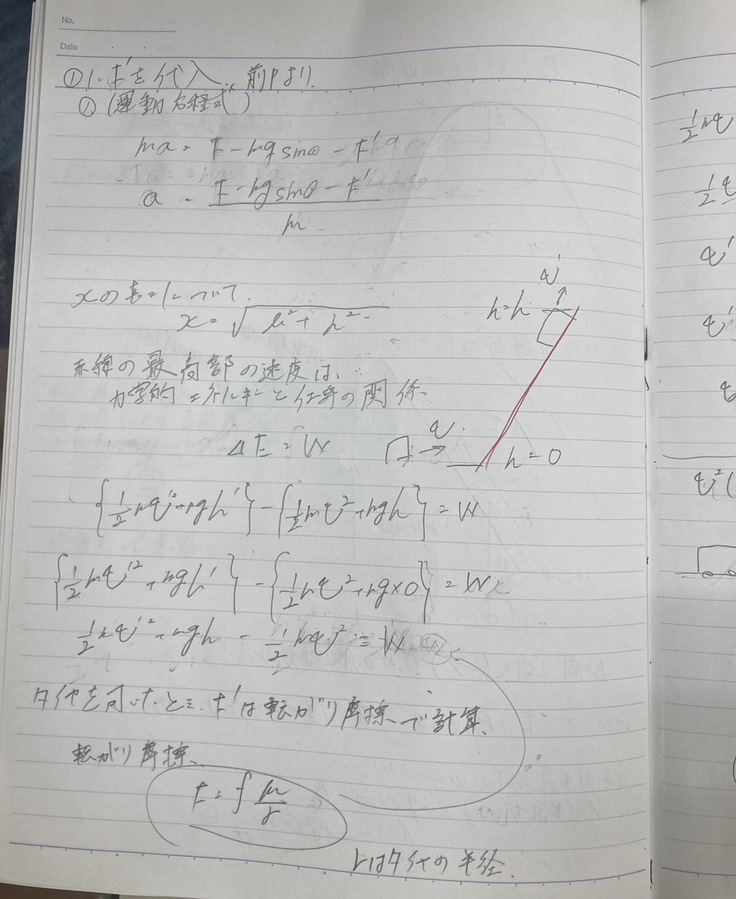 No.
Date
①1. F'を代入. 前Pより.
②(運動方程式)
ma = F - mg sinθ - F'
a = F - mg sinθ - F' / m
xの長さについて.
x = √ + h²
赤線の最高部の速度は、
力学的エネルギーと仕事の関係.
ΔE = W
v'
h=h
v
h=0
{1/2 mv'²+mgh'} - {1/2 mv²+mgh} = W
{1/2 mv'²+mgh'} - {1/2 mv²+mg×0} = W
1/2 mv'²+mgh - 1/2 mv² = W
タイヤを用いたとき. F'は転がり摩擦で計算.
転がり摩擦.
F = f m/r
rはタイヤの半径.
1/2 mv
1/2
v'
v'
v²(